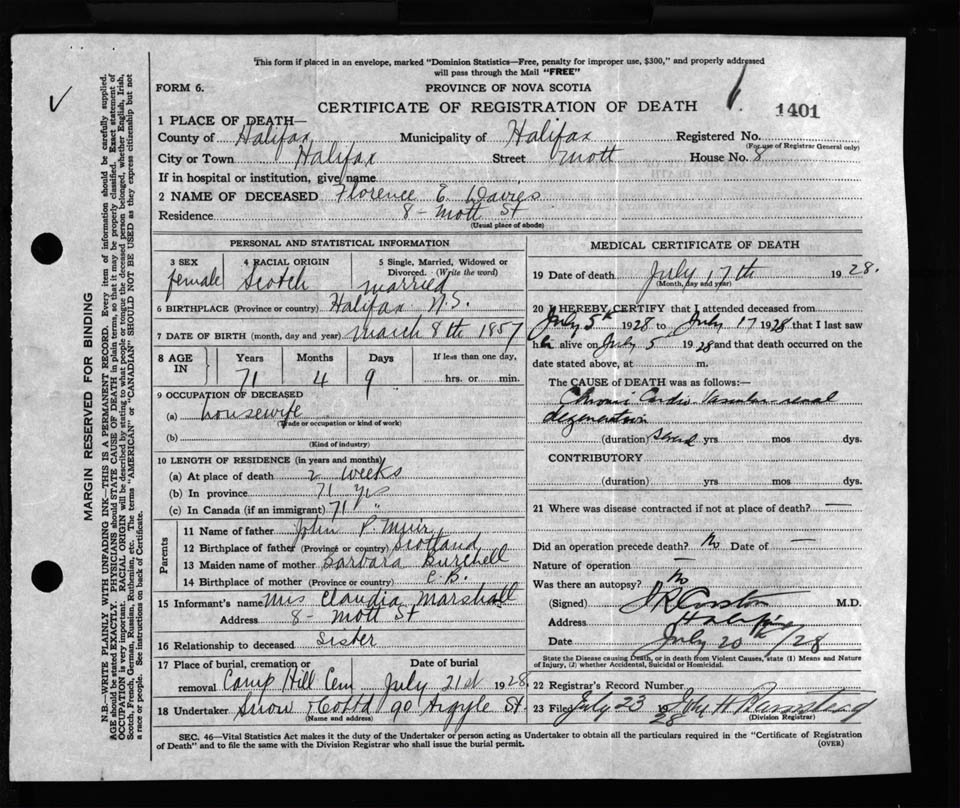 This form if placed in an envelope, marked "Dominion Statistics—Free, penalty for improper use, $300," and properly addressed
will pass through the Mail "FREE"
FORM 6.
PROVINCE OF NOVA SCOTIA
CERTIFICATE OF REGISTRATION OF DEATH
1401
1 PLACE OF DEATH—
County of Halifax Municipality of Halifax Registered No.
(For use of Registrar General only)
City or Town Halifax Street Mott House No. 8
If in hospital or institution, give name
2 NAME OF DECEASED Florence E. Davies
Residence 8 - Mott St
(Usual place of abode)
PERSONAL AND STATISTICAL INFORMATION
3 SEX female
4 RACIAL ORIGIN Scotch
5 Single, Married, Widowed or Divorced. (Write the word) married
6 BIRTHPLACE (Province or country) Halifax N.S.
7 DATE OF BIRTH (month, day and year) March 8th 1857
8 AGE IN Years 71 Months 4 Days 9 If less than one day, hrs. or min.
9 OCCUPATION OF DECEASED
(a) housewife
(Trade or occupation or kind of work)
(b)
(Kind of industry)
10 LENGTH OF RESIDENCE (in years and months)
(a) At place of death 2 weeks
(b) In province 71 Yrs
(c) In Canada (if an immigrant) 71 "
Parents
11 Name of father John P. Muir
12 Birthplace of father (Province or country) Scotland
13 Maiden name of mother Barbara Burchell
14 Birthplace of mother (Province or country) C.B.
15 Informant's name Mrs Claudia Marshall
Address 8 - Mott St
16 Relationship to deceased Sister
17 Place of burial, cremation or removal Camp Hill Cem Date of burial July 21st 1928
18 Undertaker Snow & Co Ltd 90 Argyle St
(Name and address)
MEDICAL CERTIFICATE OF DEATH
19 Date of death July 17th 1928.
(Month, day and year)
20 I HEREBY CERTIFY that I attended deceased from
July 5th 1928 to July 17 1928 that I last saw
h er alive on July 5 1928 and that death occurred on the
date stated above, at m.
The CAUSE of DEATH was as follows:—
Chronic Cardio Vascular-renal
degeneration
(duration) Several yrs mos dys.
CONTRIBUTORY
(duration) yrs mos dys.
21 Where was disease contracted if not at place of death? —
Did an operation precede death? No Date of —
Nature of operation —
Was there an autopsy? No
(Signed) M.D.
Address Halifax
Date July 20th /28
State the Disease causing Death, or in death from Violent Causes, state (1) Means and Nature
of Injury, (2) whether Accidental, Suicidal or Homicidal.
22 Registrar's Record Number
23 Filed July 23 1928
(Division Registrar)
SEC. 46—Vital Statistics Act makes it the duty of the Undertaker or person acting as Undertaker to obtain all the particulars required in the "Certificate of Registration
of Death" and to file the same with the Division Registrar who shall issue the burial permit.
(OVER)
MARGIN RESERVED FOR BINDING
N.B.—WRITE PLAINLY WITH UNFADING INK—THIS IS A PERMANENT RECORD. Every item of information should be carefully supplied.
AGE should be stated EXACTLY. PHYSICIANS should STATE CAUSE OF DEATH in plain terms, so that it may be properly classified. Exact statement of
OCCUPATION is very important. RACIAL ORIGIN will be described by stating to what people or tongue the deceased person belonged, whether English, Irish,
Scotch, French, German, Russian, Ruthenian, etc. The terms "AMERICAN" or "CANADIAN" SHOULD NOT BE USED as they express citizenship but not
a race or people. See instructions on back of Certificate.